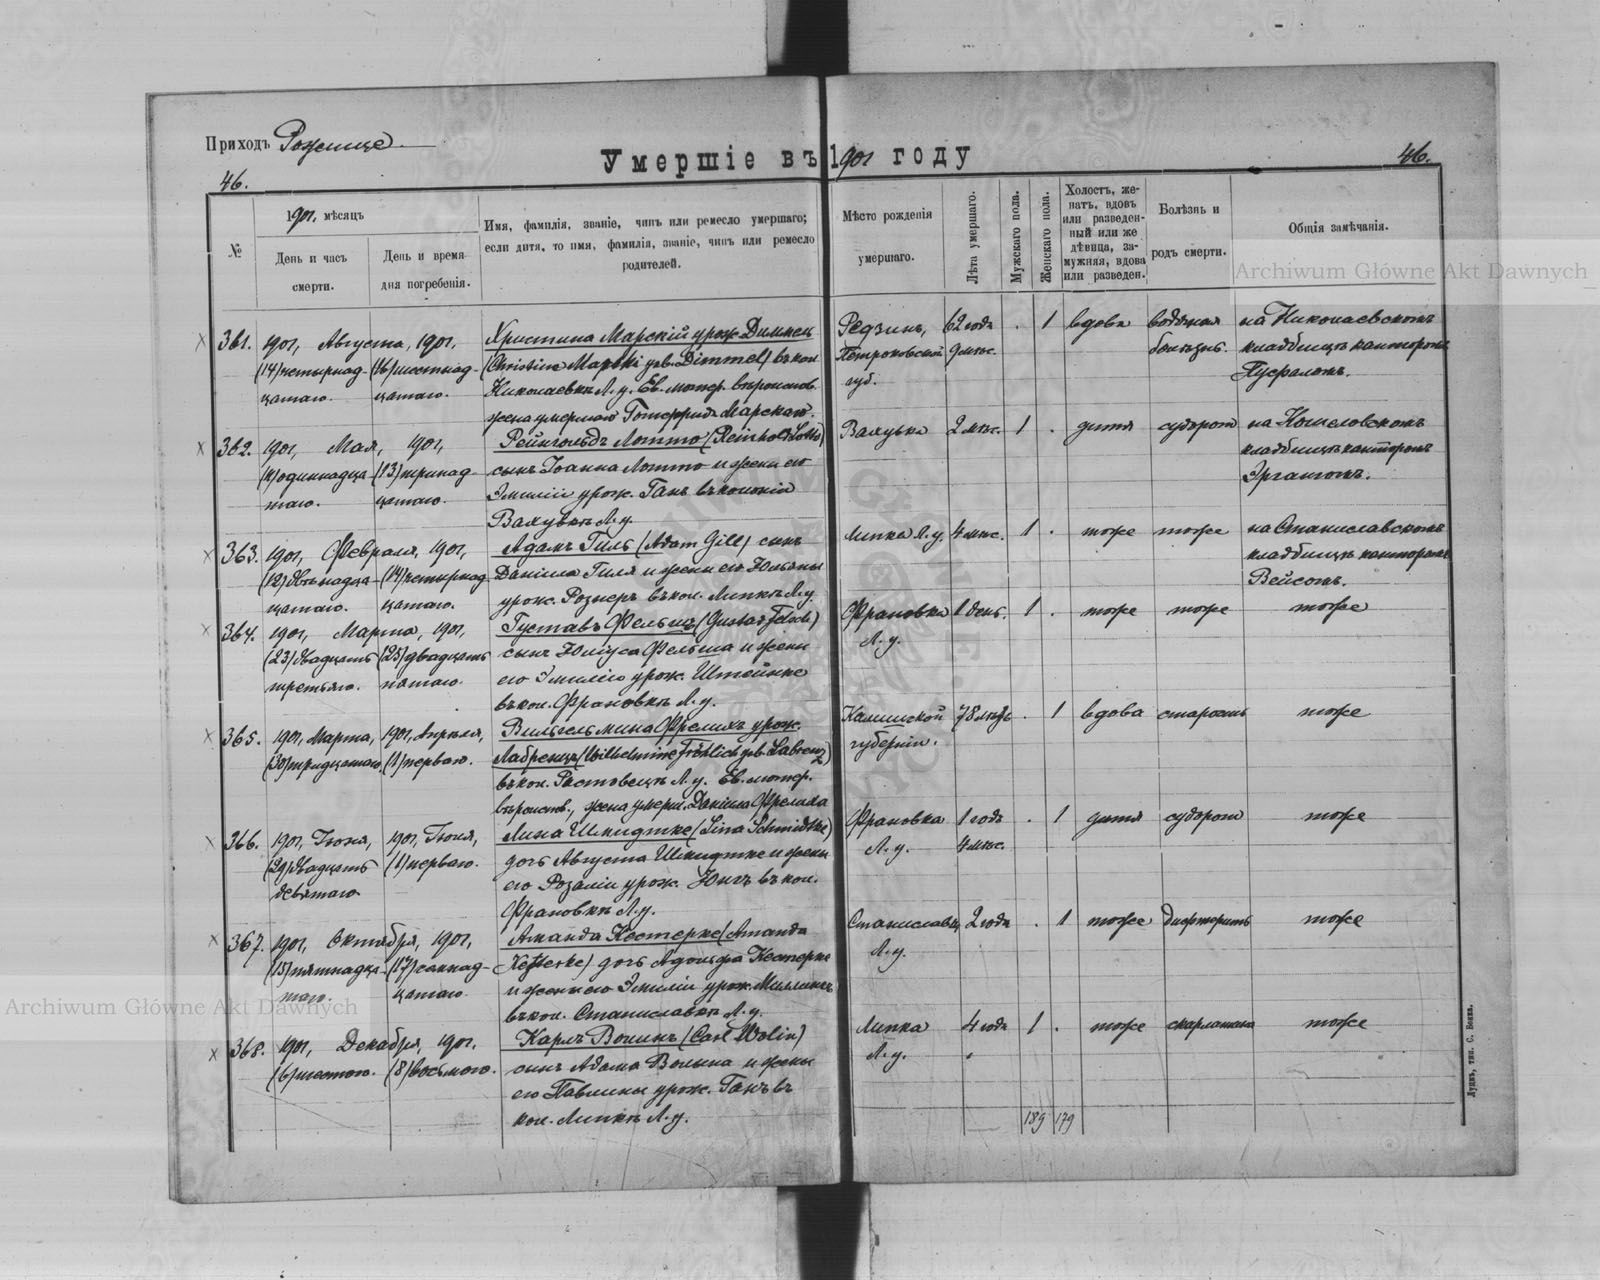 Приходъ Рожище
Умершіе въ 1901 году
46.
46.
№
1901, мѣсяцъ
День и часъ смерти.
День и время дня погребенія.
Имя, фамилія, званіе, чинъ или ремесло умершаго;
если дитя, то имя, фамилія, званіе, чинъ или ремесло
родителей.
Мѣсто рожденія
умершаго.
Лѣта умершаго.
Мужскаго пола.
Женскаго пола.
Холостъ, же-
натъ, вдовъ
или разведен-
ный или же
дѣвица, за-
мужняя, вдова
или разведен.
Болѣзнь и
родъ смерти.
Общія замѣчанія.
Archiwum Główne Akt Dawnych
361.
1901, Августа, 1901,
(14) четырнад- (16) шестнад-
цатаго. цатаго.
Христина Марскій урож. Диммель
(Christine Marski geb. Dimmel) въ кол.
Николаевкѣ Л. у. Ев. лютер. вѣроиспов.
жена умершаго Готфрида Марскаго.
Редзинь,
Петроковской
губ.
62 года
9 мѣс.
. 1
вдова
водяная
болѣзнь.
на Николаевскомъ
кладбищѣ канторомъ
362.
1901, Мая, 1901,
(11) одиннадца- (13) тринад-
таго. цатаго.
Рейнгольдъ Лотто (Reinhold Lotto)
сынъ Іоанна Лотто и жены его
Эмиліи урож. Ганъ въ колоніи
Валувкѣ Л. у.
Валувка
2 мѣс.
1 .
дитя
судороги
на
кладбищѣ канторомъ
363.
1901, Февраля, 1901,
(12) двѣнадца- (14) четырнад-
цатаго. цатаго.
Адамъ Гиль (Adam Gill) сынъ
Даніила Гиля и жены его Юльяны
урож. Рознеръ въ кол. Липкѣ Л. у.
Липка Л. у.
4 мѣс.
1 .
тоже
тоже
на Станиславскомъ
кладбищѣ канторомъ
Вейсомъ.
364.
1901, Марта, 1901,
(23) двадцать (25) двадцать
третьяго. пятаго.
Густавъ Фельшъ (Gustav Felsch)
сынъ Юліуса Фельша и жены
его Эмиліи урож. Штейнке
въ кол. Франовкѣ Л. у.
Франовка
Л. у.
1 день.
1 .
тоже
тоже
тоже
365.
1901, Марта, 1901, Апрѣля,
(30) тридцатаго (1) перваго.
Вильгельмина Фрелихъ урож.
Лабренцъ (Wilhelmine Fröhlich geb. Labrenz)
въ кол. Растовецъ Л. у. Ев. лютер.
вѣроиспов., жена умерш. Даніила Фрелиха
Калишской
губерніи.
78 лѣтъ
. 1
вдова
старость
тоже
366.
1901, Іюня, 1901, Іюля,
(29) двадцать (1) перваго.
девятаго
Лина Шмидтке (Lina Schmidtke)
дочь Августа Шмидтке и жены
его Розаліи урож. Юнгъ въ кол.
Франовкѣ Л. у.
Франовка
Л. у.
1 годъ
4 мѣс.
. 1
дитя
судороги
тоже
367.
1901, Октября, 1901,
(15) пятнадца- (17) семнад-
таго. цатаго.
Аманда Кестерке (Amanda
Kesterke) дочь Адольфа Кестерке
и жены его Эмиліи урож.
въ кол. Станиславкѣ Л. у.
Л. у.
2 года
. 1
тоже
дифтеритъ
тоже
368.
1901, Декабря, 1901.
(6) шестого. (8) восьмого.
Карлъ Волинъ (Carl Wolin)
сынъ Адама Волина и жены
его Павлины урож. Ганъ въ
кол. Липкѣ Л. у.
Липка
Л. у.
4 года
1 .
тоже
скарлатина
тоже
189 179
Archiwum Główne Akt Dawnych
Луцкъ, тип. С. Бокия.